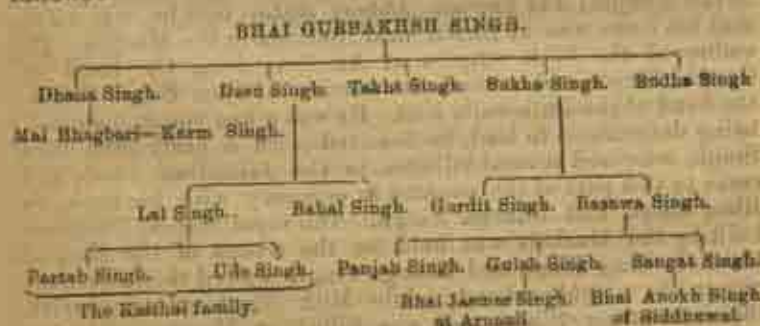 BHAI GURBAKHSH SINGH.
Dhana Singh. Desu Singh. Takht Singh. Sukha Singh. Budha Singh
Mai Bhagbari—Karm Singh.
Lal Singh. Bahal Singh. Gurdit Singh. Basawa Singh.
Partab Singh. Ude Singh. Panjab Singh. Gulab Singh. Sangat Singh.
The Kaithal family. Bhai Jasmer Singh. Bhai Anokh Singh
at of Siddhuwal.